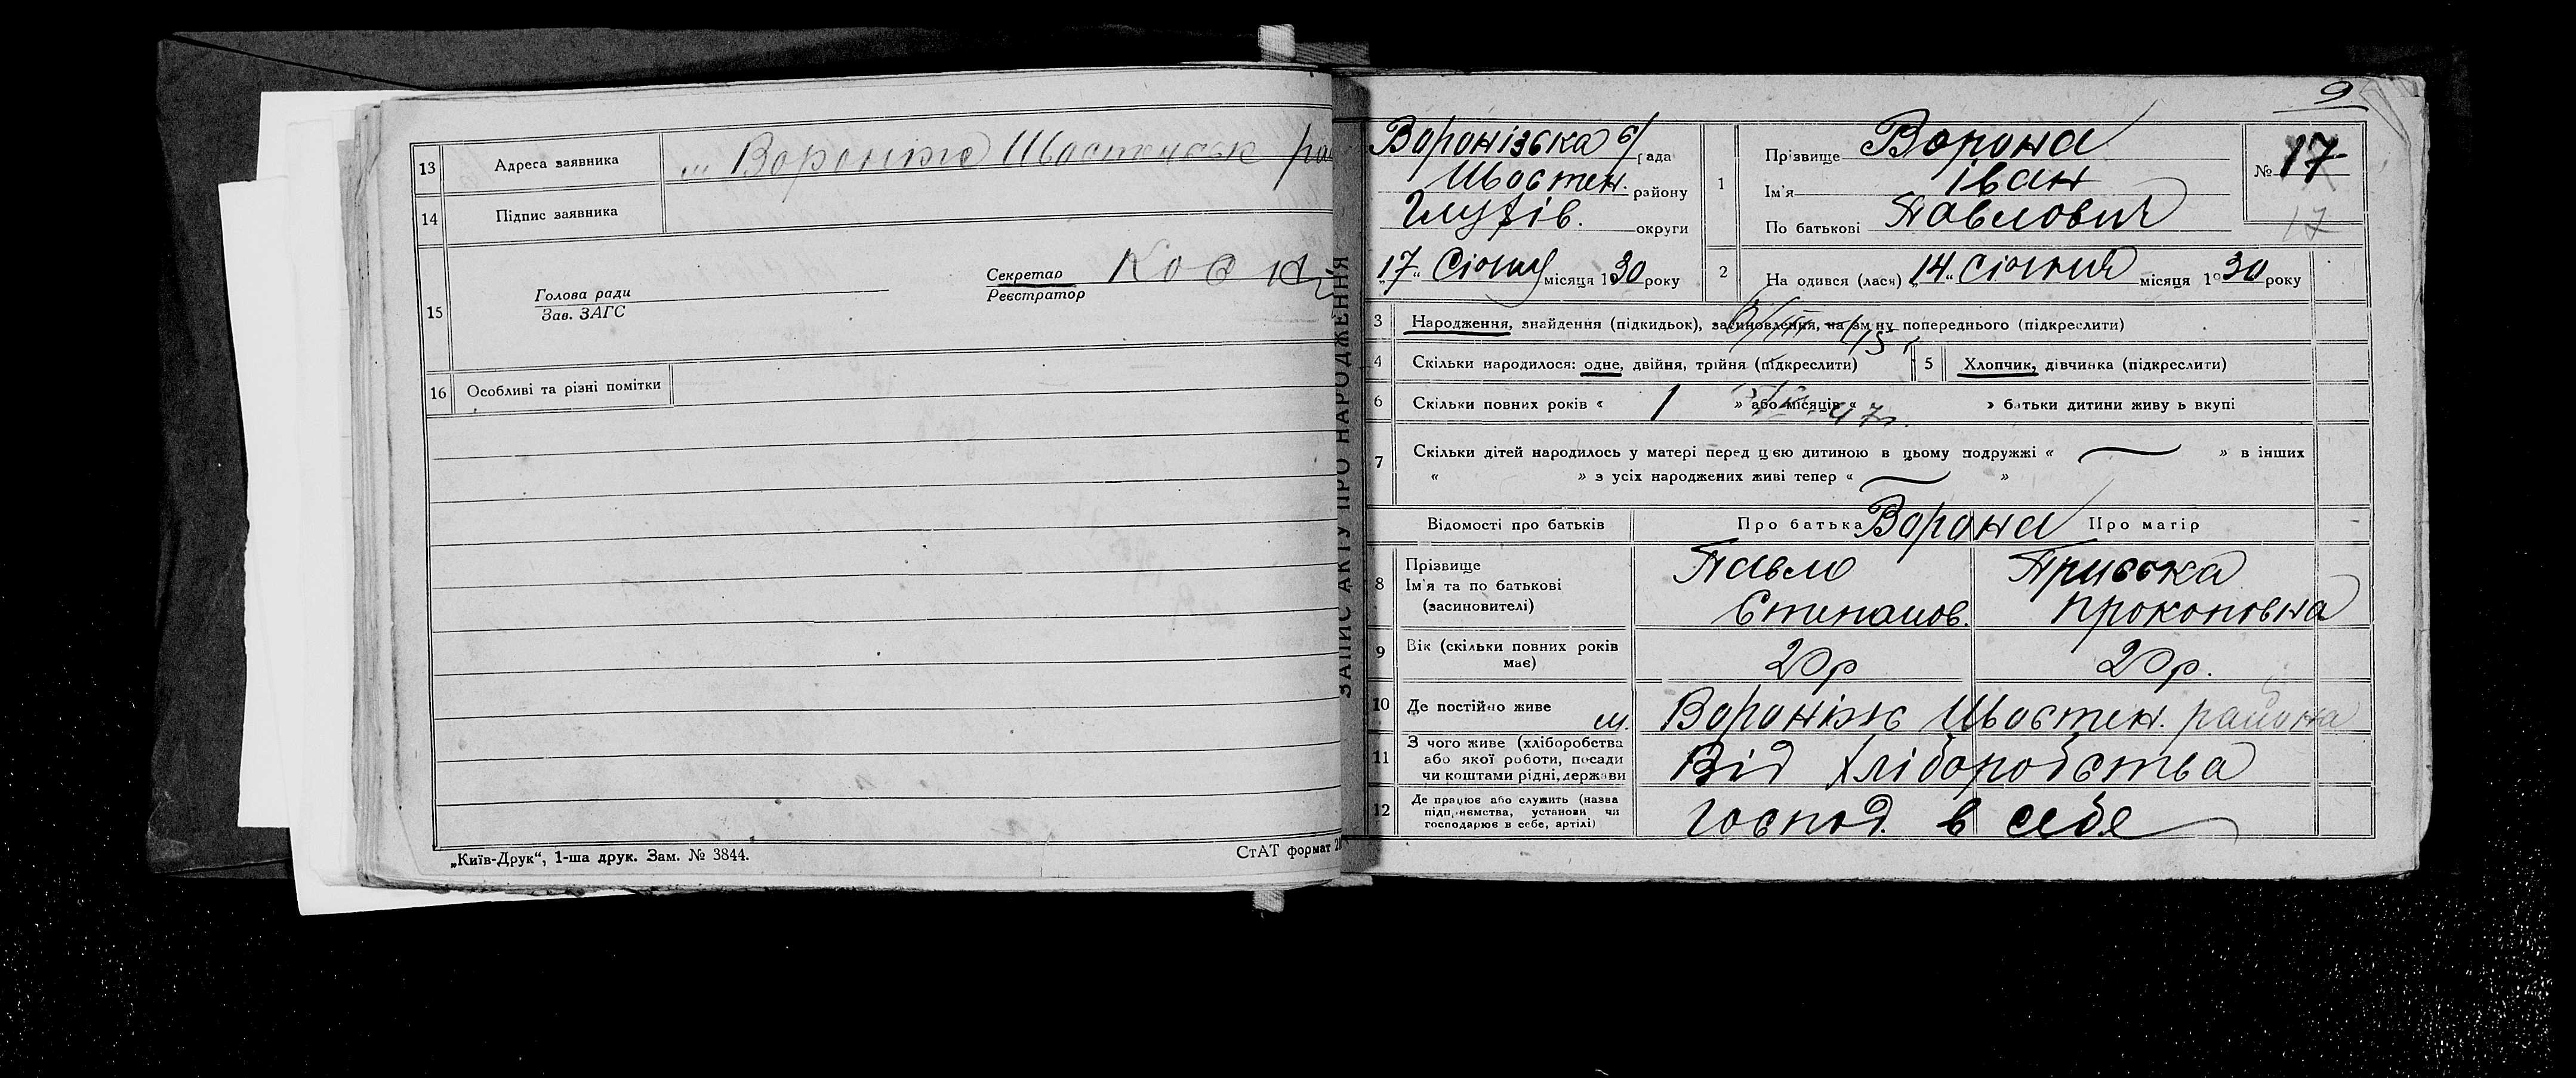 13 Адреса заявника „ Вороніж Шостенськ ра
14 Підпис заявника
15 Голова ради
Зав. ЗАГС
Секретар
Реєстратор
16 Особливі та різні помітки
„Київ-Друк“, 1-ша друк. Зам. № 3844.
СтАТ формат
ЗАПИС АКТУ ПРО НАРОДЖЕННЯ
9
Воронізька с/рада
Шостен. району
Глухів. округи
„17„ Січня місяця 1930 року
1 Прізвище Ворона
Ім'я Іван
По батькові Павлович
№ 17
17
2 На одився (лася) „14„ Січня місяця 1930 року
3 Народження, знайдення (підкидьок), засиновлення, на зміну попереднього (підкреслити)
4 Скільки народилося: одне, двійня, трійня (підкреслити)
5 Хлопчик, дівчинка (підкреслити)
6 Скільки повних років « 1 » або місяців « » батьки дитини живуть вкупі
7 Скільки дітей народилось у матері перед цією дитиною в цьому подружжі « — » в інших
« » з усіх народжених живі тепер « — »
Відомості про батьків Про батька Ворона Про матір
8 Прізвище
Ім'я та по батькові
(засиновителі)
Павло
Степанов.
Приська
Прокоповна
9 Вік (скільки повних років
має)
20р
20р.
10 Де постійно живе м. Вороніж Шостен. района
11 З чого живе (хліборобства
або якої роботи, посади
чи коштами рідні, держави
Від хліборобства
12 Де працює або служить (назва
підприємства, установи чи
господарює в себе, артілі)
господ. в себе